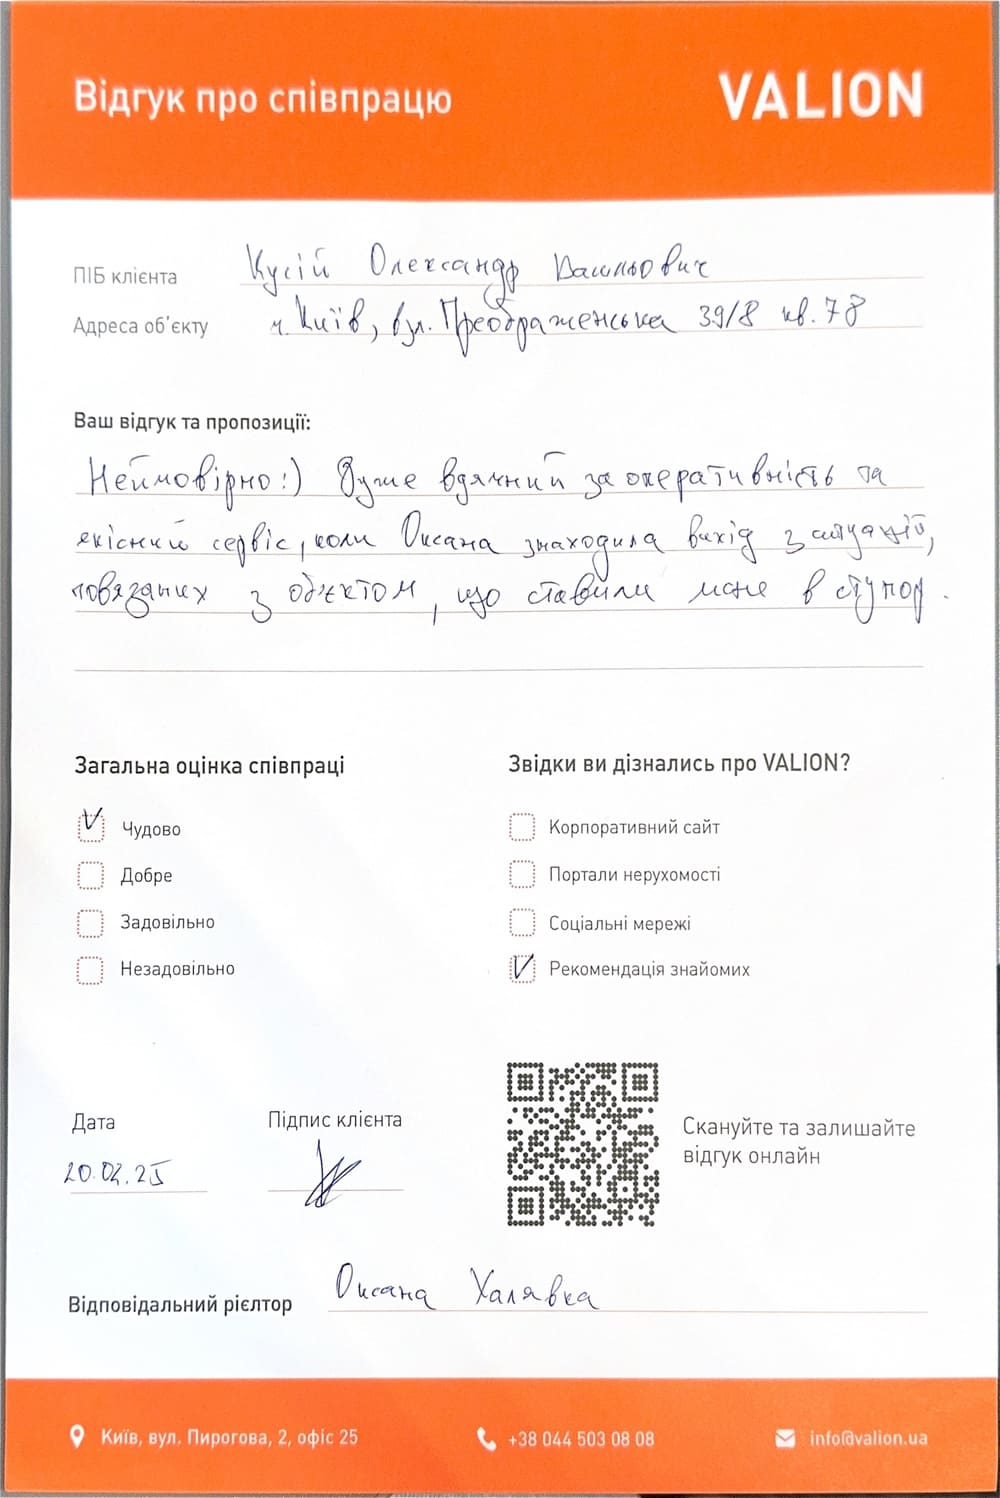 Відгук про співпрацю VALION
ПІБ клієнта Кусій Олександр Васильович
Адреса об'єкту м. Київ, вул. Преображенська 39/8 кв. 78
Ваш відгук та пропозиції:
Неймовірно:) Дуже вдячний за оперативність та
якісний сервіс, коли Оксана знаходила вихід з ситуацій,
повязаних з об'єктом, що ставили мене в ступор.
Загальна оцінка співпраці
Чудово
Добре
Задовільно
Незадовільно
Звідки ви дізнались про VALION?
Корпоративний сайт
Портали нерухомості
Соціальні мережі
Рекомендація знайомих
Дата
20.02.25
Підпис клієнта
Скануйте та залишайте
відгук онлайн
Відповідальний рієлтор Оксана Халявка
Київ, вул. Пирогова, 2, офіс 25 +38 044 503 08 08 info@valion.ua